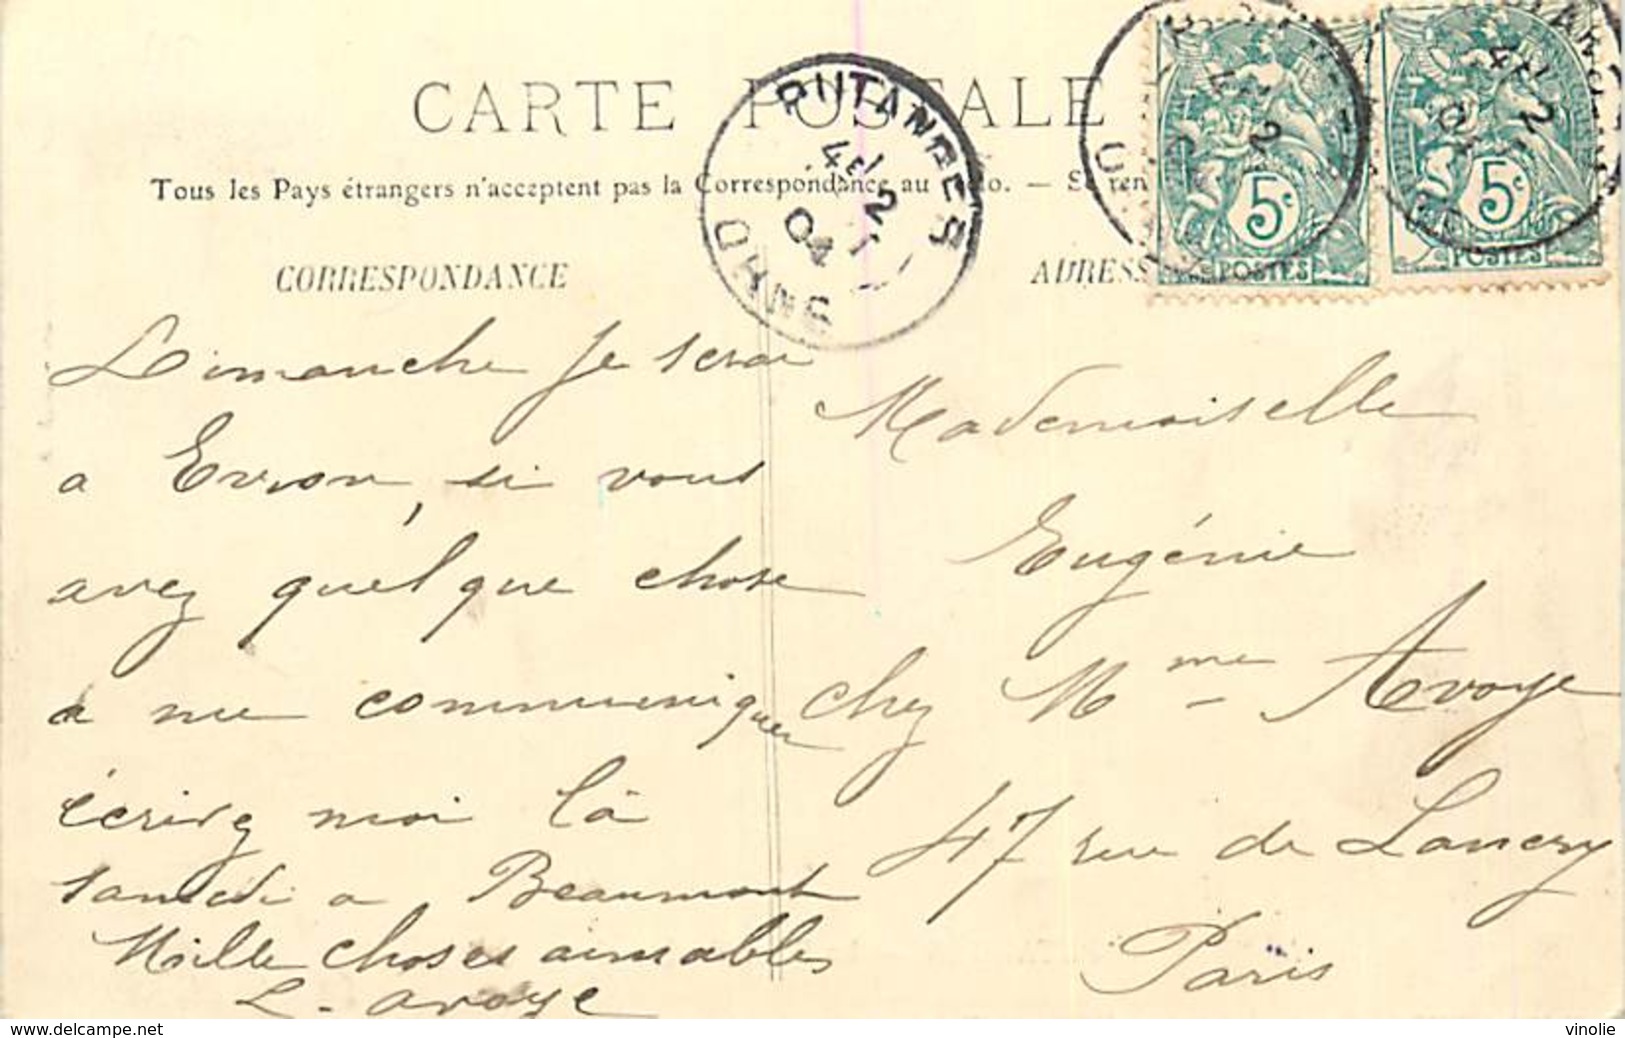 CARTE POSTALE
Tous les Pays étrangers n'acceptent pas la Correspondance au
CORRESPONDANCE
ADRESSE
PUTANGES
4E
2
04
ORNE
5c
POSTES
5c
POSTES
Dimanche je serai
a Evron, si vous
avez quelque chose
a me communiquer
écrivez moi là
samedi a Beaumont
Mille choses aimables
L. avoye
Mademoiselle
Eugénie
chez Mme Avoye
47 rue de Lancry
Paris
www.delcampe.net
vinolie